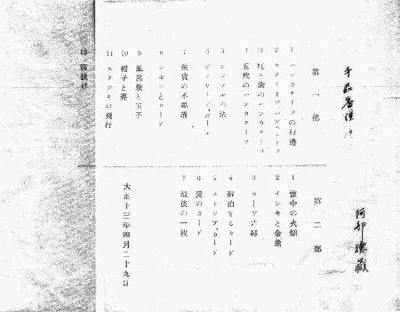 手品番組
阿部徳蔵
第一部
1 ハンカチーフの行違
2 ハンカチーフ
3 のハンカチーフ
4 五枚のハンカチーフ
5 シンブルの法
6 ビリヤード、ボール
7 銀貨の不思議
8 レモンとカード
9 風呂敷と玉子
10 帽子と
11 ステッキの飛行
12
第二部
1 懐中の火焔
2 インキと金魚
3 カード
4 宿泊するカード
5 ストップ、カード
6 愛のカード
7 最後の一枚
大正十三年四月二十九日